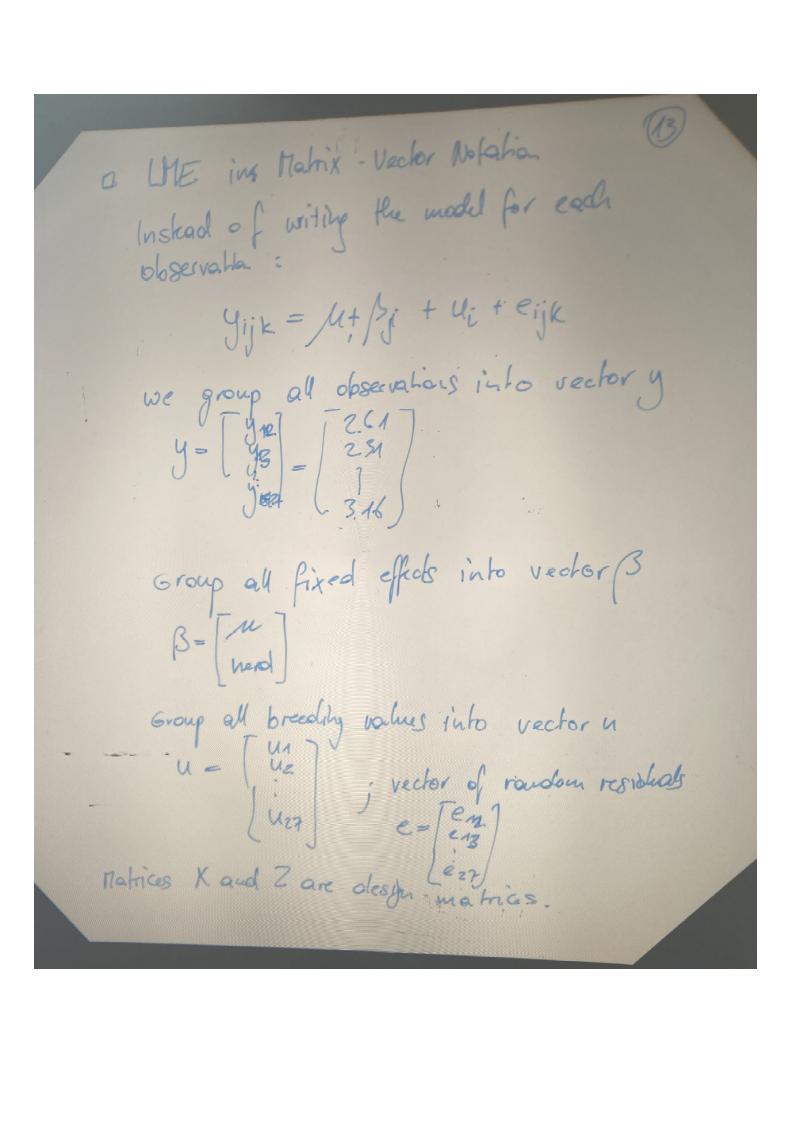 13
LME ins Matrix-Vector Notation
Instead of writing the model for each
observation :
yijk = μ + βj + ui + eijk
we group all observations into vector y
y = [ y12 y13 ⋮ ] = [ 2.61 2.31 3.16 ]
Group all fixed effects into vector β
β = [ μ herd ]
Group all breeding values into vector u
u = [ u1 u2 ⋮ u27 ] ; vector of random residuals
e = [ e12 e13 ⋮ e27 ]
Matrices X and Z are design matrices.